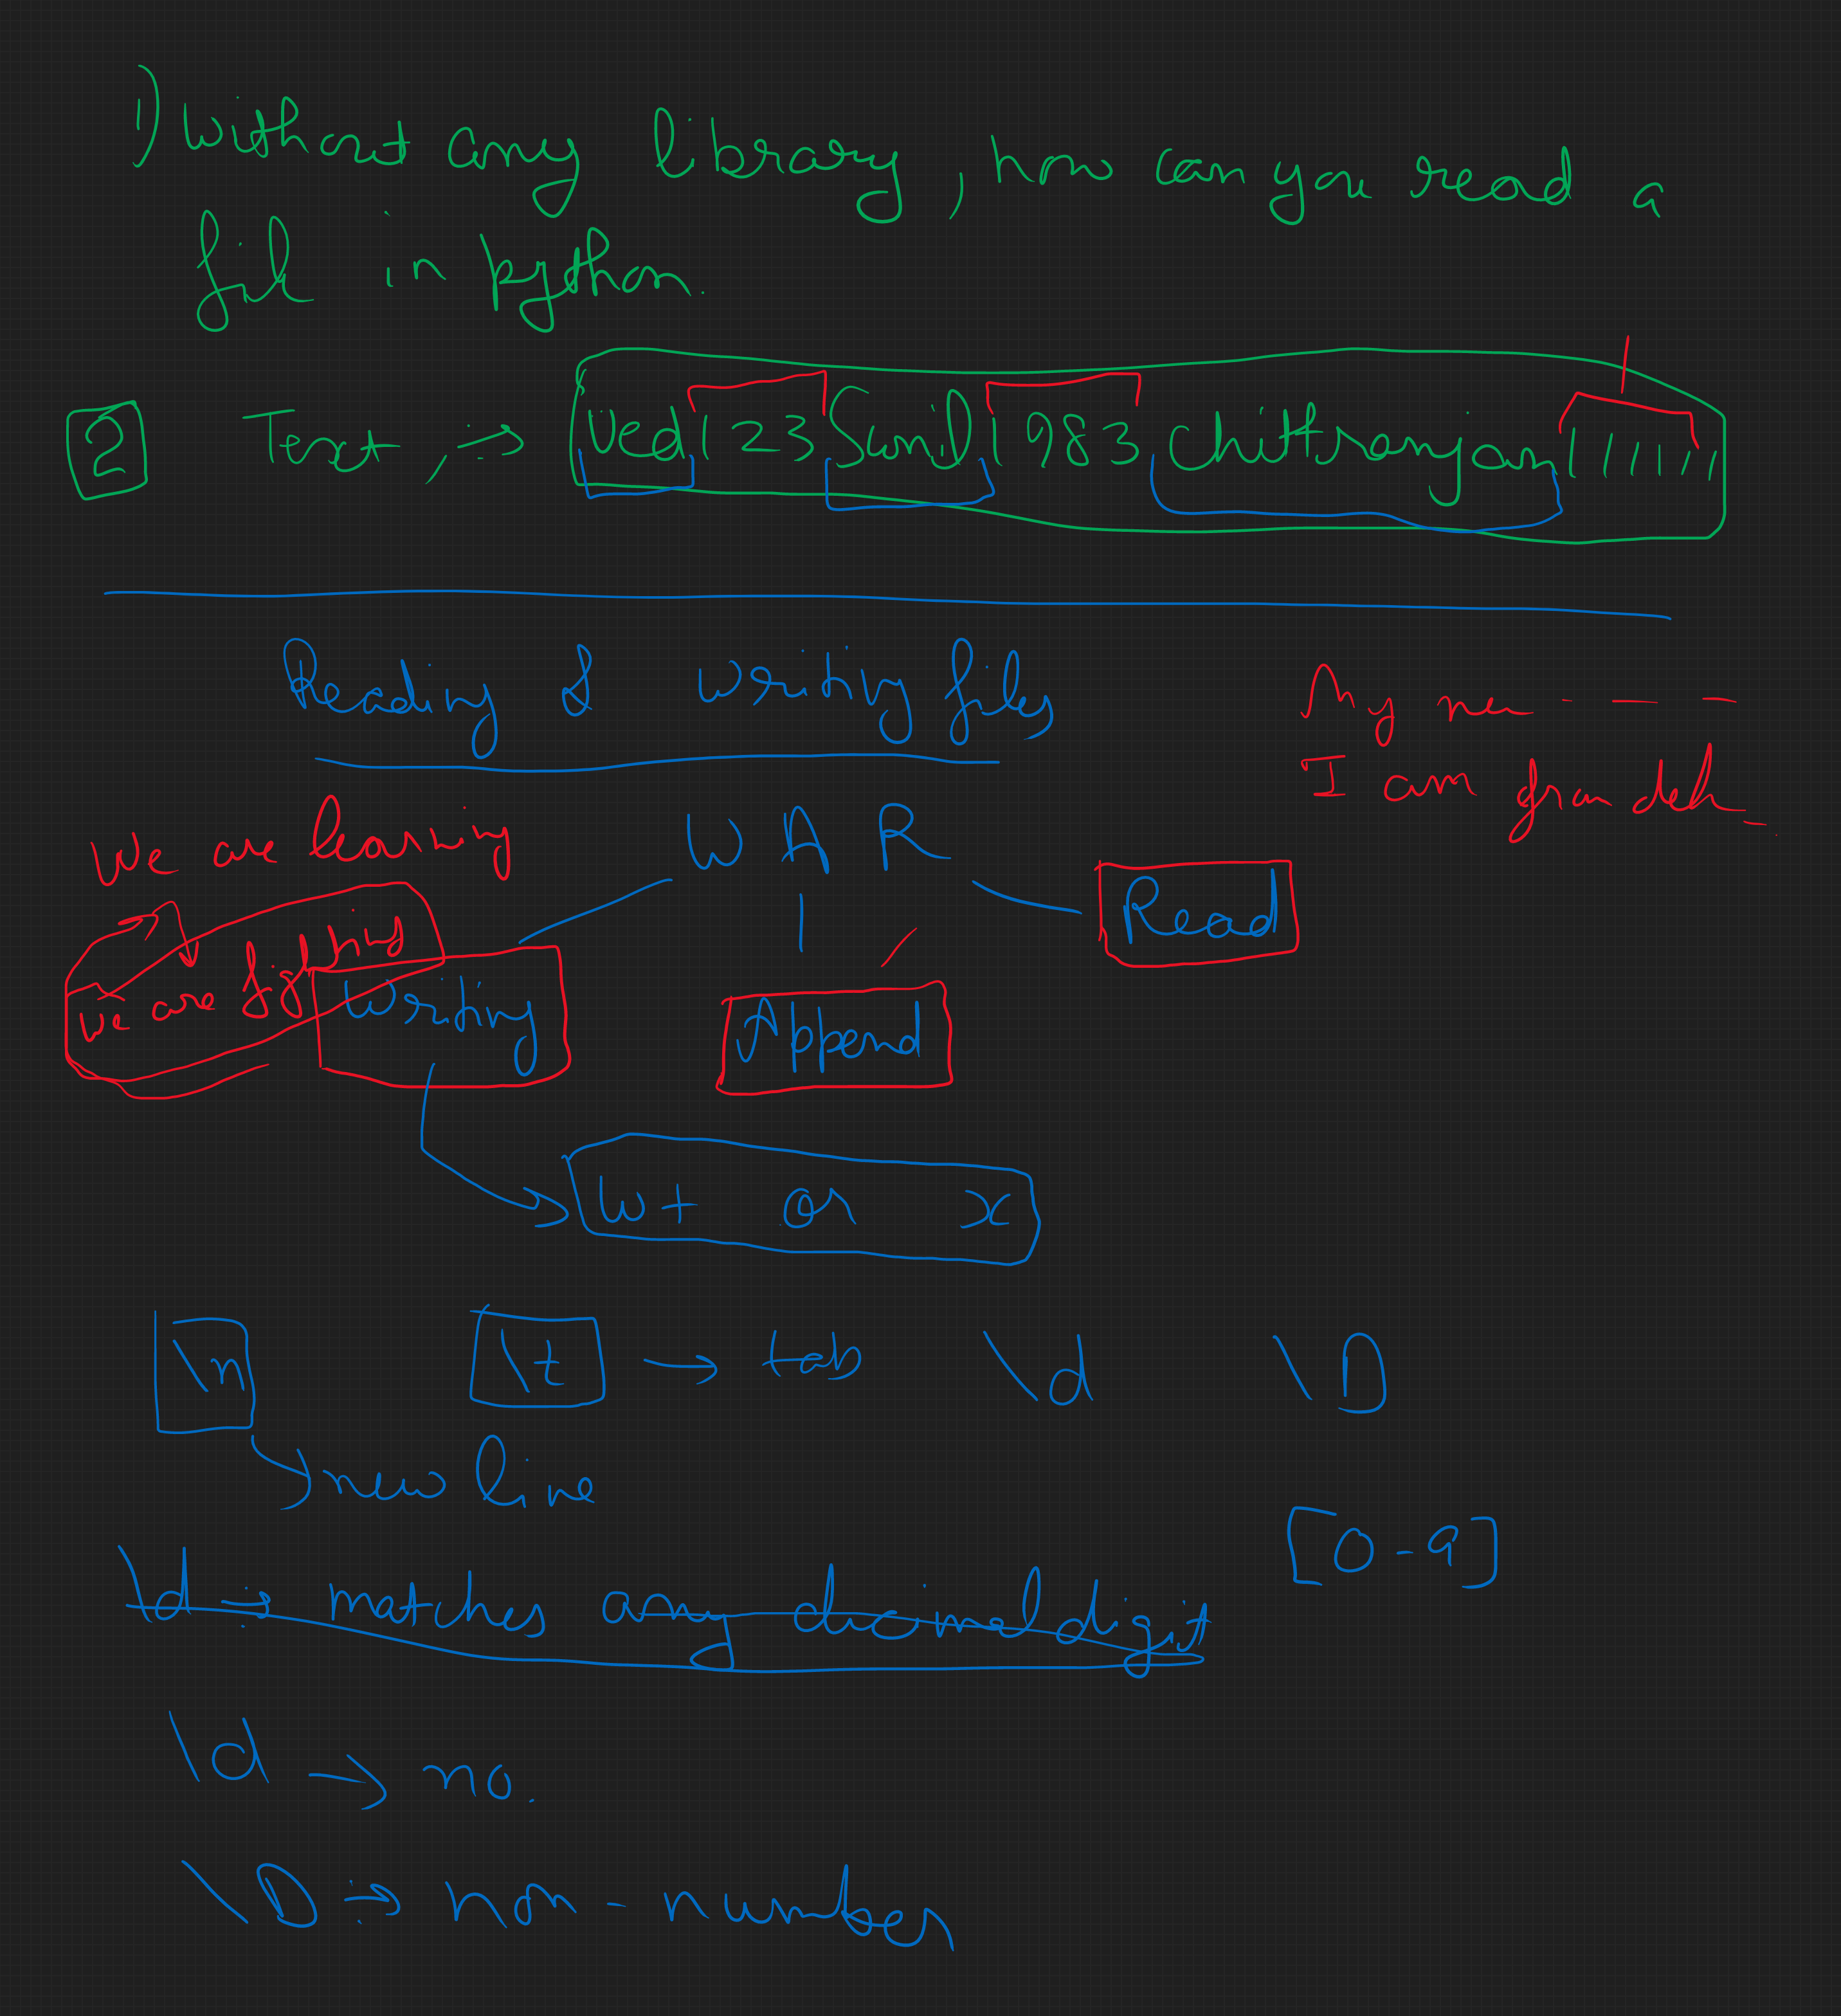 1) Without any library, how can you read a
file in python.
2 Text, → Ved123Sunil1983Chittranjan
Reading & writing files
My
I am
We are learning
W A R
Read
We are fighting
Writing
Append
w+ or x
\n
\t → tab \d \D
new line
[0-9]
\d → matches any decimal digit
\d → no.
\D → non-number